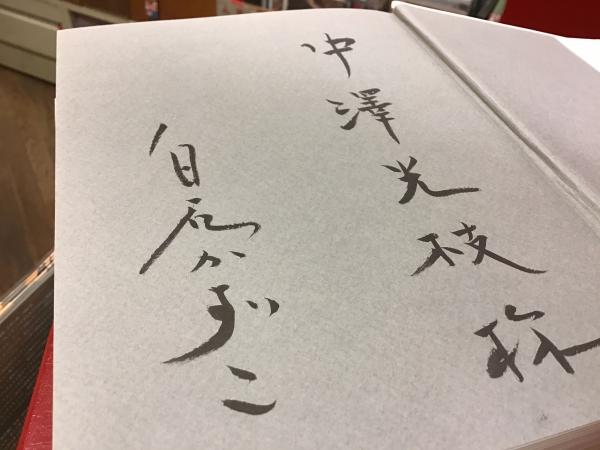 中澤光枝様
白石かずこ